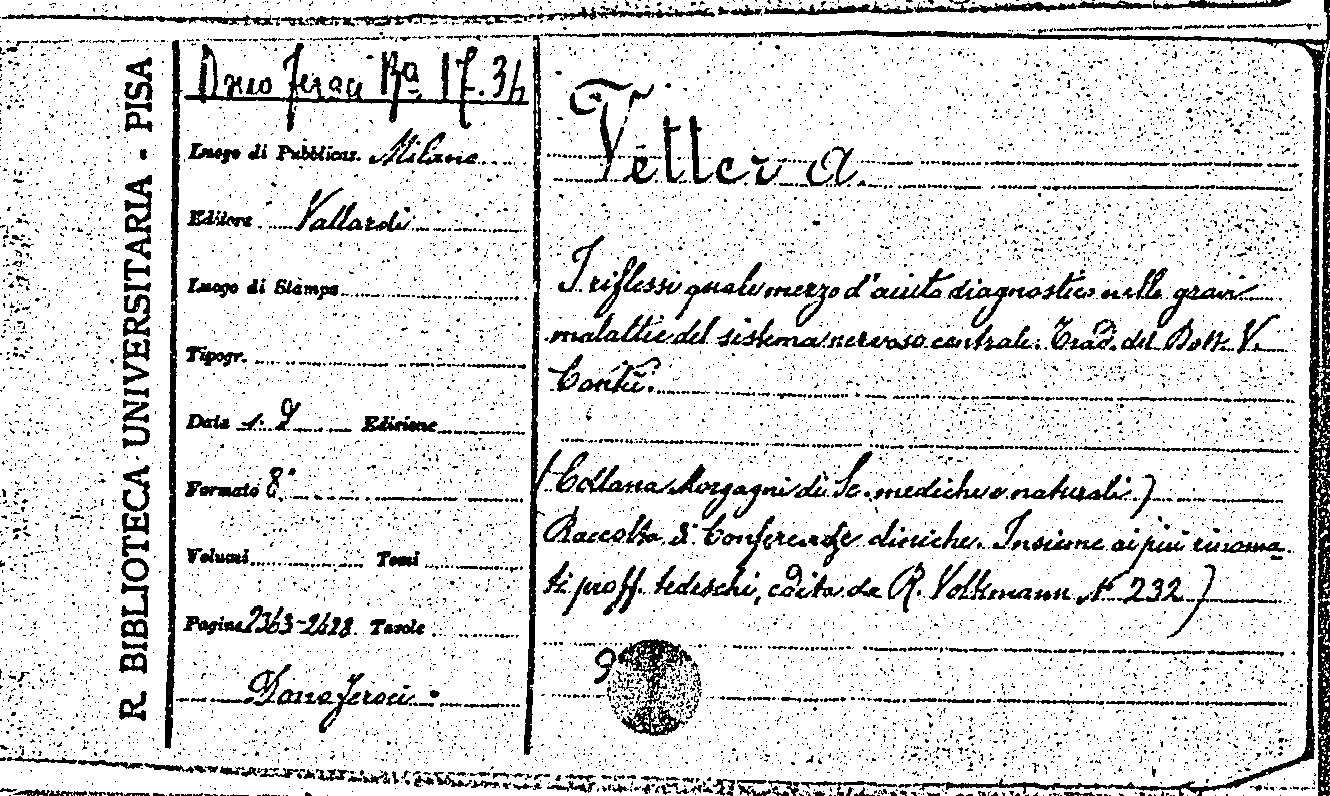 R. BIBLIOTECA UNIVERSITARIA - PISA
Dono Feroci Ba 17.34
Luogo di Pubblicaz. Milano
Editore Vallardi
Luogo di Stampa
Tipogr.
Data s. d. Edizione
Formato 8°
Volumi Tomi
Pagine 2363-2428 Tavole
Dono Feroci.
Vetter A.
I riflessi quale mezzo d'aiuto diagnostico nelle gravi
malattie del sistema nervoso centrale. Trad. del Dott. V.
Cantù.
(Collana Morgagni di Sc. mediche e naturali)
Raccolta di Conferenze cliniche. Insieme ai più rinoma-
ti proff. tedeschi, edita da R. Volkmann N. 232)
9